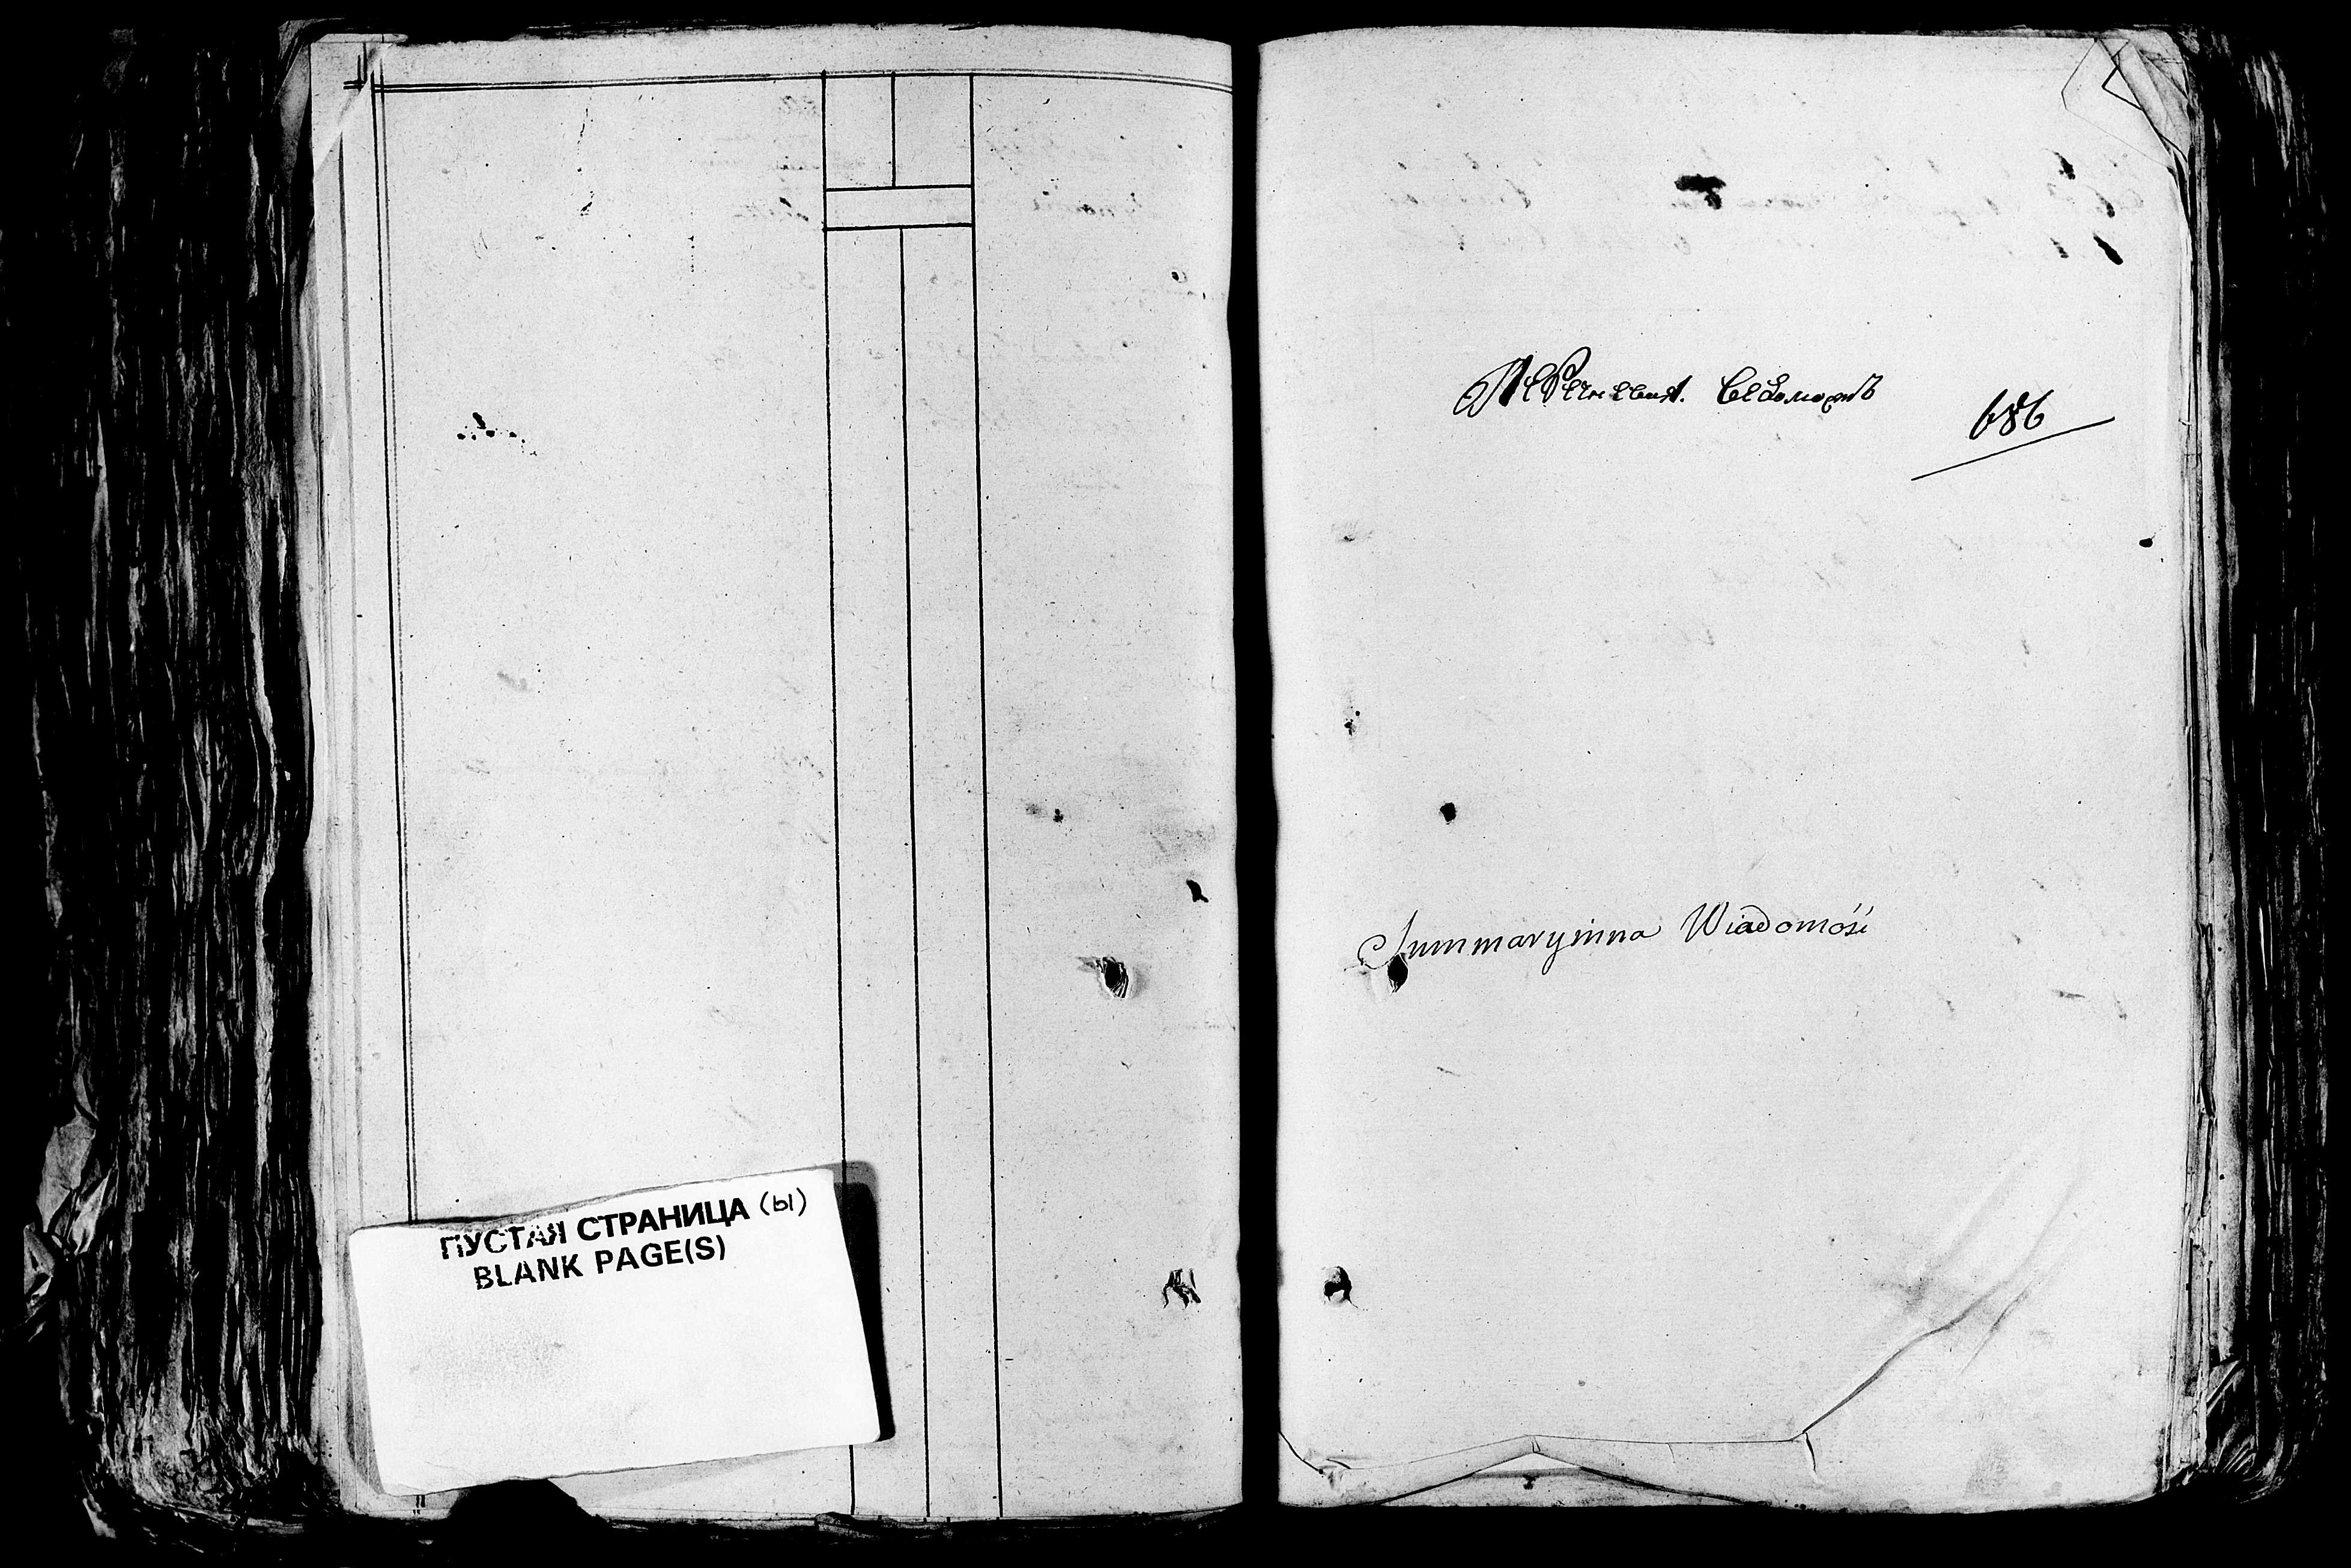 ПУСТАЯ СТРАНИЦА (Ы)
BLANK PAGE(S)
Перечневая. Ведомость
686
Summaryinna Wiadomość